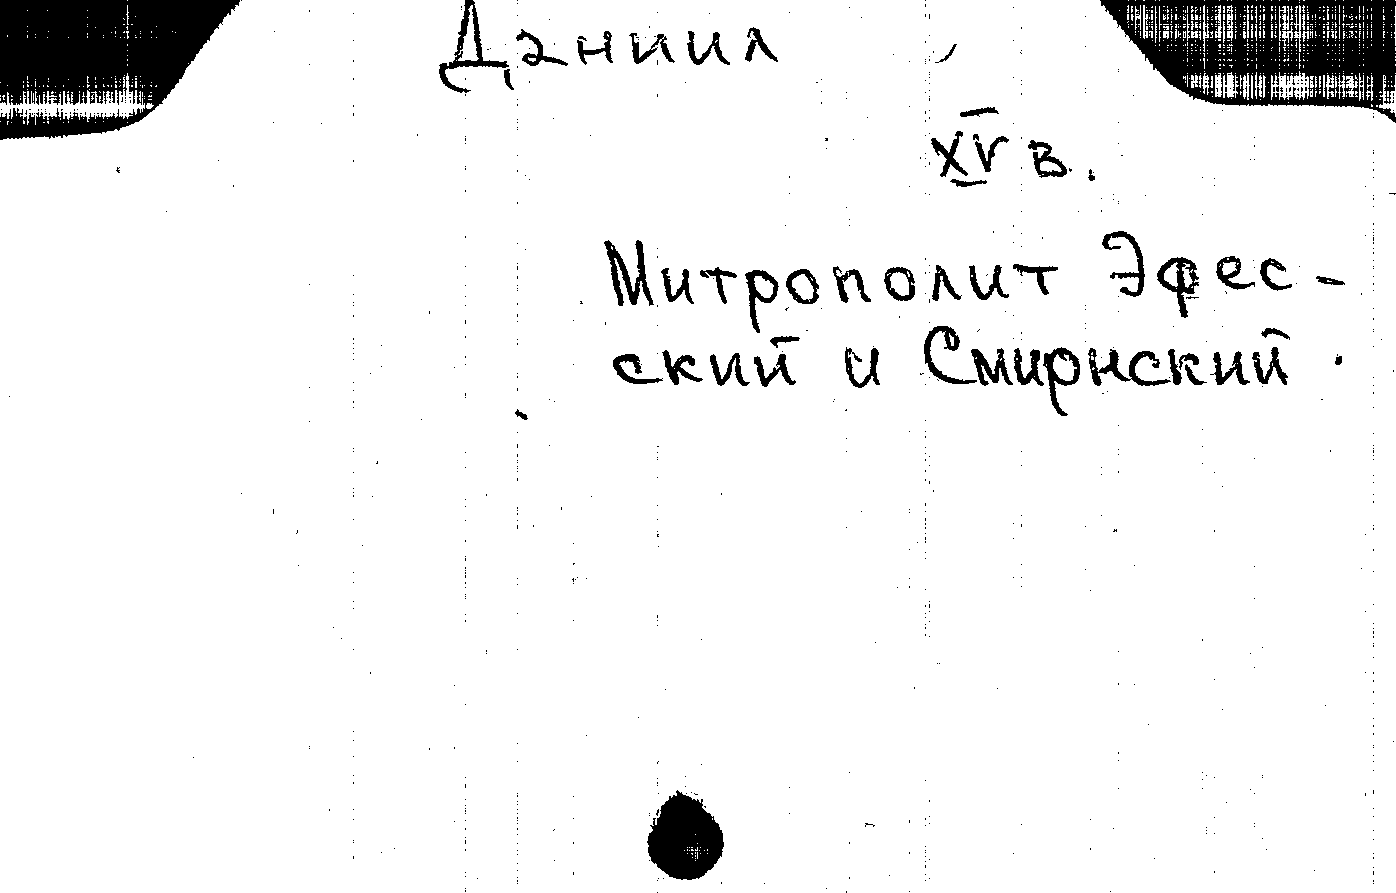 Даниил
XV в.
Митрополит Эфес-
ский и Смирнский.